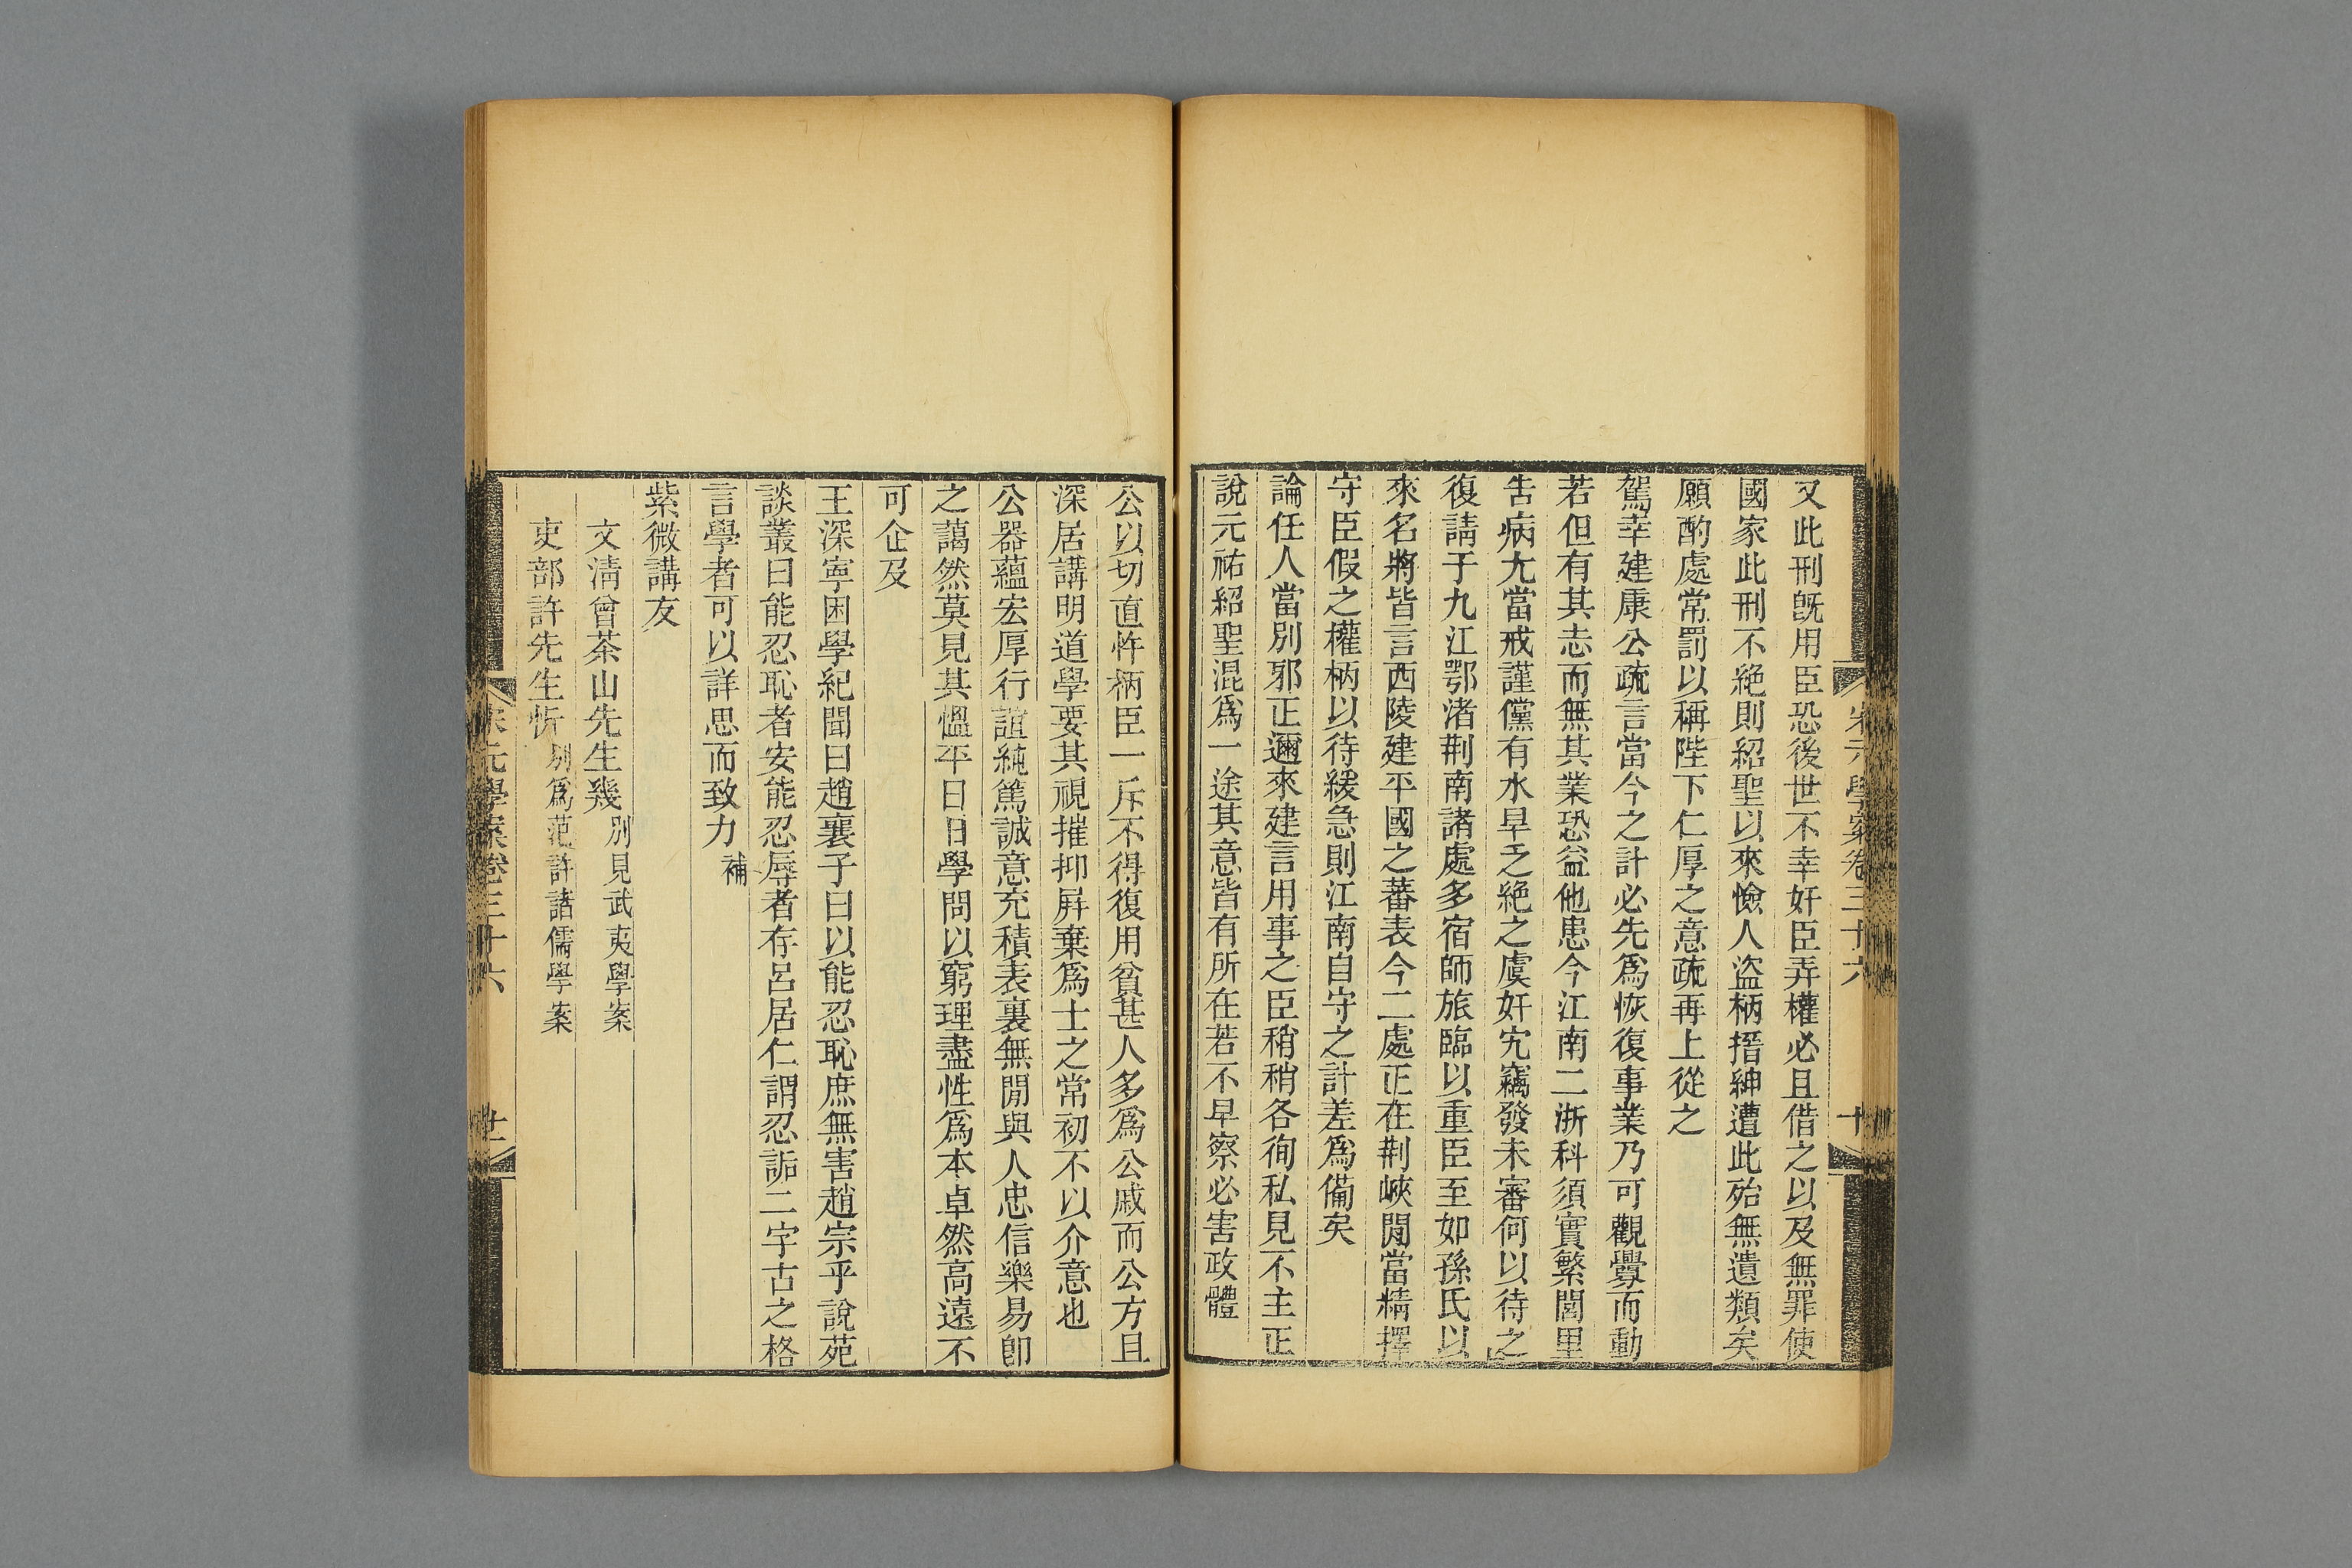 又此刑旣用臣恐後世不幸奸臣弄權必且借之以及無罪使
國家此刑不絶則紹聖以來憸人盜柄搢紳遭此殆無遺類矣
願酌處常罰以稱陛下仁厚之意疏再上從之
駕幸建康公疏言當今之計必先爲恢復事業乃可觀釁而動
若但有其志而無其業恐益他患今江南二浙科須實繁閭里
告病尤當戒謹儻有水旱乏絶之虞奸宄竊發未審何以待之
復請于九江鄂渚荆南諸處多宿師旅臨以重臣至如孫氏以
來名將皆言西陵建平國之蕃表今二處正在荆峽閒當精擇
守臣假之權柄以待緩急則江南自守之計差爲備矣
論任人當別邪正邇來建言用事之臣稍稍各徇私見不主正
說元祐紹聖混爲一途其意皆有所在若不早察必害政體
宋元學案卷三十六
十
公以切直忤柄臣一斥不得復用貧甚人多爲公戚而公方且
深居講明道學要其視摧抑屛棄爲士之常初不以介意也
公器蘊宏厚行誼純篤誠意充積表裏無閒與人忠信樂易卽
之藹然莫見其慍平日日學問以窮理盡性爲本卓然高遠不
可企及
王深寧困學紀聞曰趙襄子曰以能忍恥庶無害趙宗乎說苑
談叢曰能忍恥者安能忍辱者存呂居仁謂忍詬二字古之格
言學者可以詳思而致力補
紫微講友
文清曾茶山先生幾別見武夷學案
吏部許先生忻別爲范許諸儒學案
宋元學案卷三十六